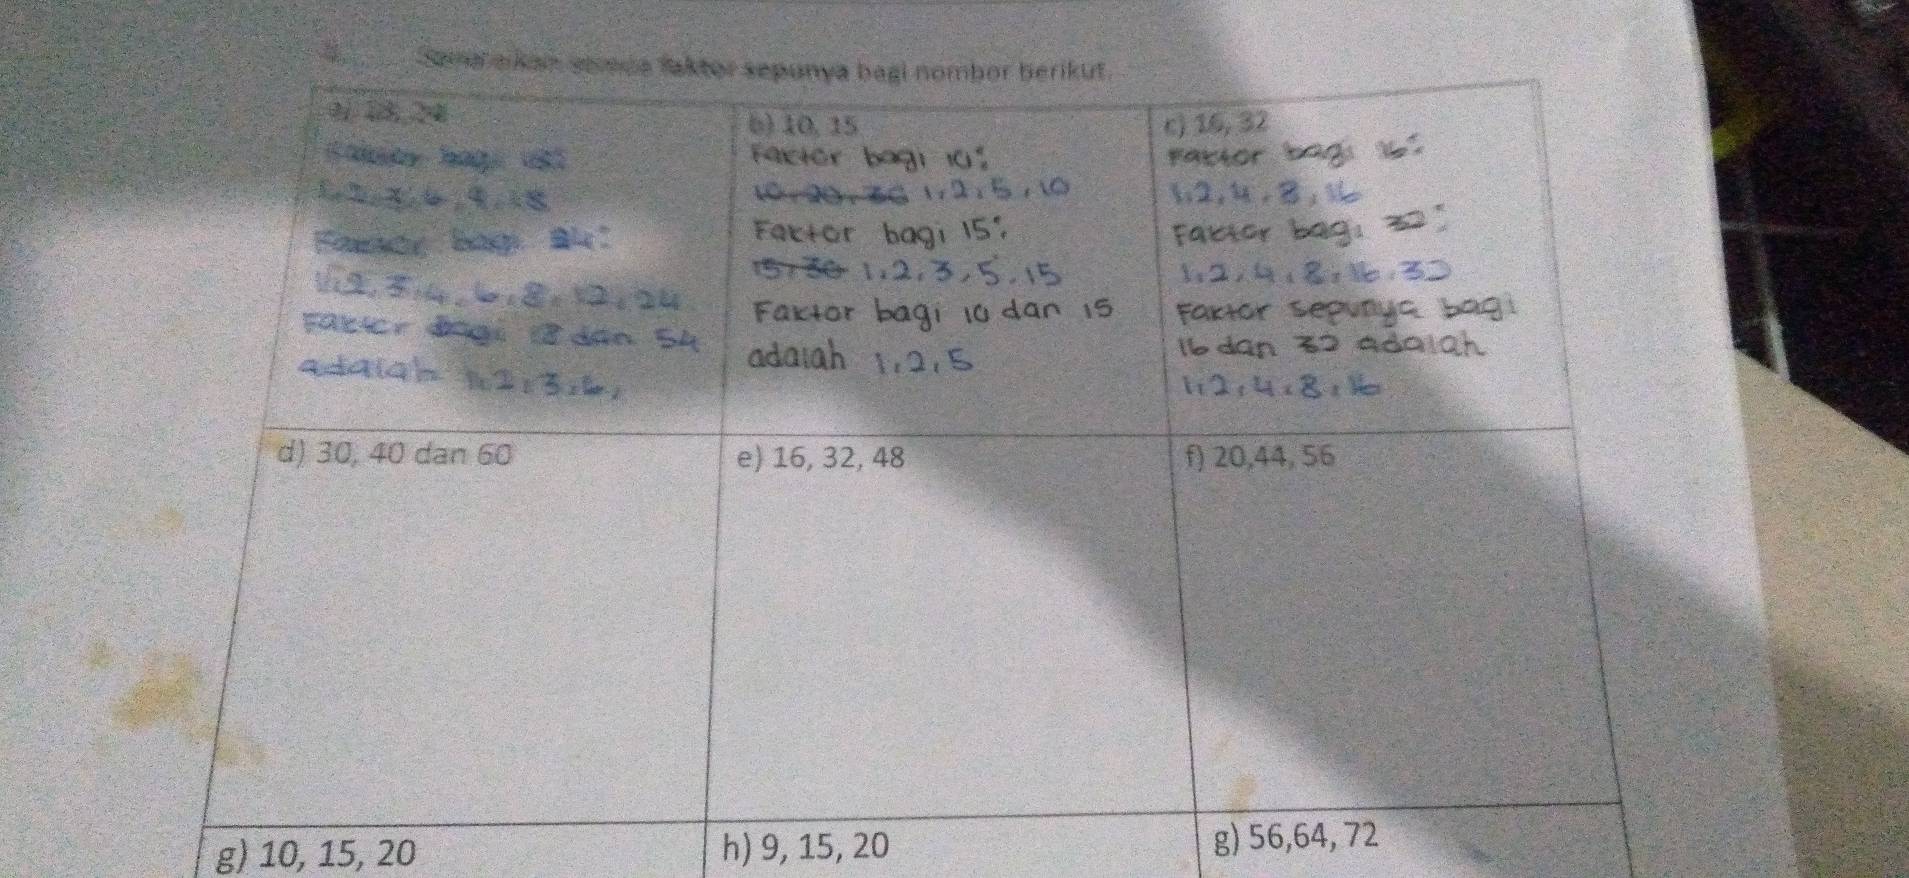 faktor sepunya bagi nombor berikut.
a) 18, 24
Faktor bagi 18:
1,2,3,6,9,18
Faktor bagi 24:
1,2,3,4,6,8,12,24
Faktor bagi 18 dan 54
adalah 1,2,3,6,
b) 10, 15
Faktor bagi 10:
10,20,30 1,2,5,10
Faktor bagi 15:
15,30 1,2,3,5,15
Faktor bagi 10 dan 15
adalah 1,2,5
c) 16, 32
Faktor bagi 16:
1,2,4,8,16
Faktor bagi 32:
1,2,4,8,16,32
Faktor sepunya bagi
16 dan 32 adalah
1,2,4,8,16
d) 30, 40 dan 60
e) 16, 32, 48
f) 20,44, 56
g) 10, 15, 20
h) 9, 15, 20
g) 56,64, 72